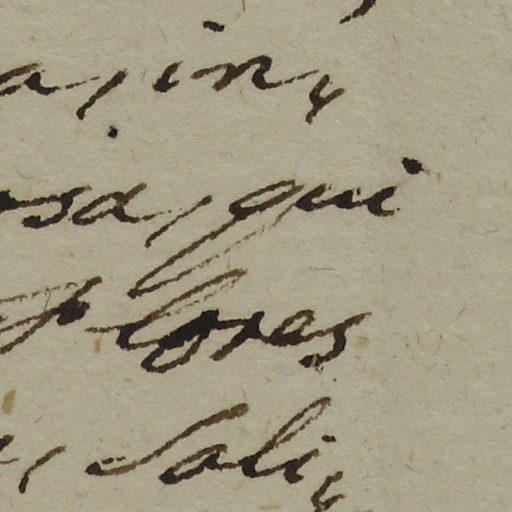 a, in,
osa, qui
flores
, Soli,